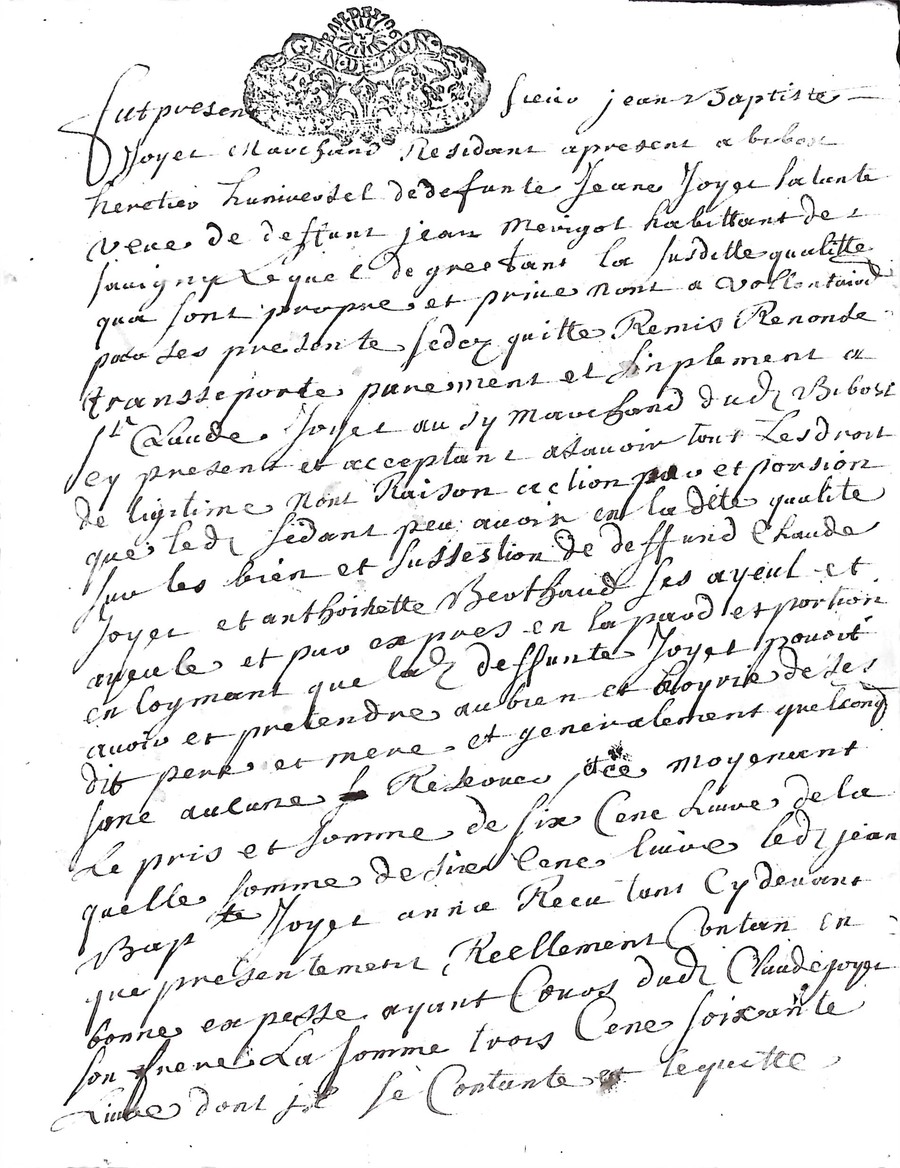 GEN DE LION
Fut present sieur jean Baptiste
Joyet Marchand Residant apresent a bibost
heretier huniversel de defunte Jeane Joyet sa tante
veve de deffunt jean Merigot habittant de
savigny Lequel de gree tant la susditte qualitte
qua sont propre et prive nont a vollontaire
par ses presente sedez quitte Remis Renonde
transseporte purement et sinplement a
Sr Claude Joyet au sy marchand dud Bibost
cy present et acceptant asavoir tout Les droit
de ligitime nont Raison action par et porsion
que led sedant peu avoir en la dite qualite
sur les bien et sussestion de deffund Claude
Joyet et anthoinette Berthaud ses ayeul et
ayeule et par expres en la pard et portion
en loymant que lad deffunte Joyet pouvoit
avoir et pretendre au bien et hoyrie de ses
dit pere et mere et generalement quelcong
sans aucune Reserve moyenant
Le pris et somme de six Cene Livre de la
quelle somme de six Cene livre led jean
Bapte Joyet anna Recu tant Cy devant
que presentement Reellement Contan en
bonne espesse ayant Cours dud Claude joyet
son frere La somme trois Cene soixante
Livre dont il se Contante et lequitte